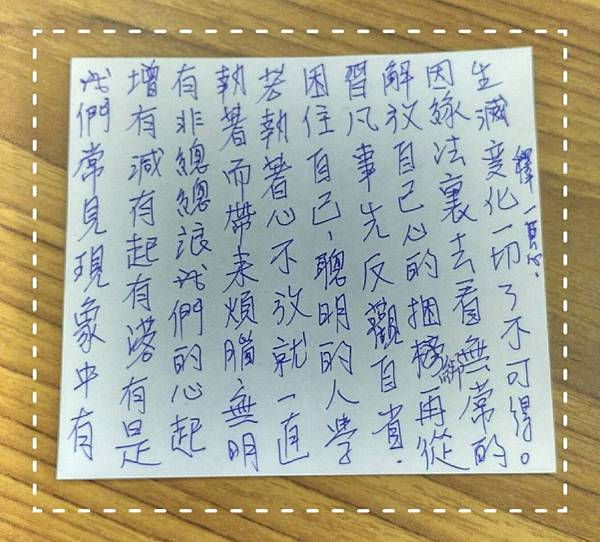 我們常見現象中有
增有減有起有落有是
有非總總浪我們的心起
執著而帶来煩腦、無明
若執著心不放就一直
困住自己,聰明的人學
習凡事先反觀自省.
解放自己心的捆榜再從
綁
因緣法裏去看無常的
生滅变化一切了不可得。
釋一